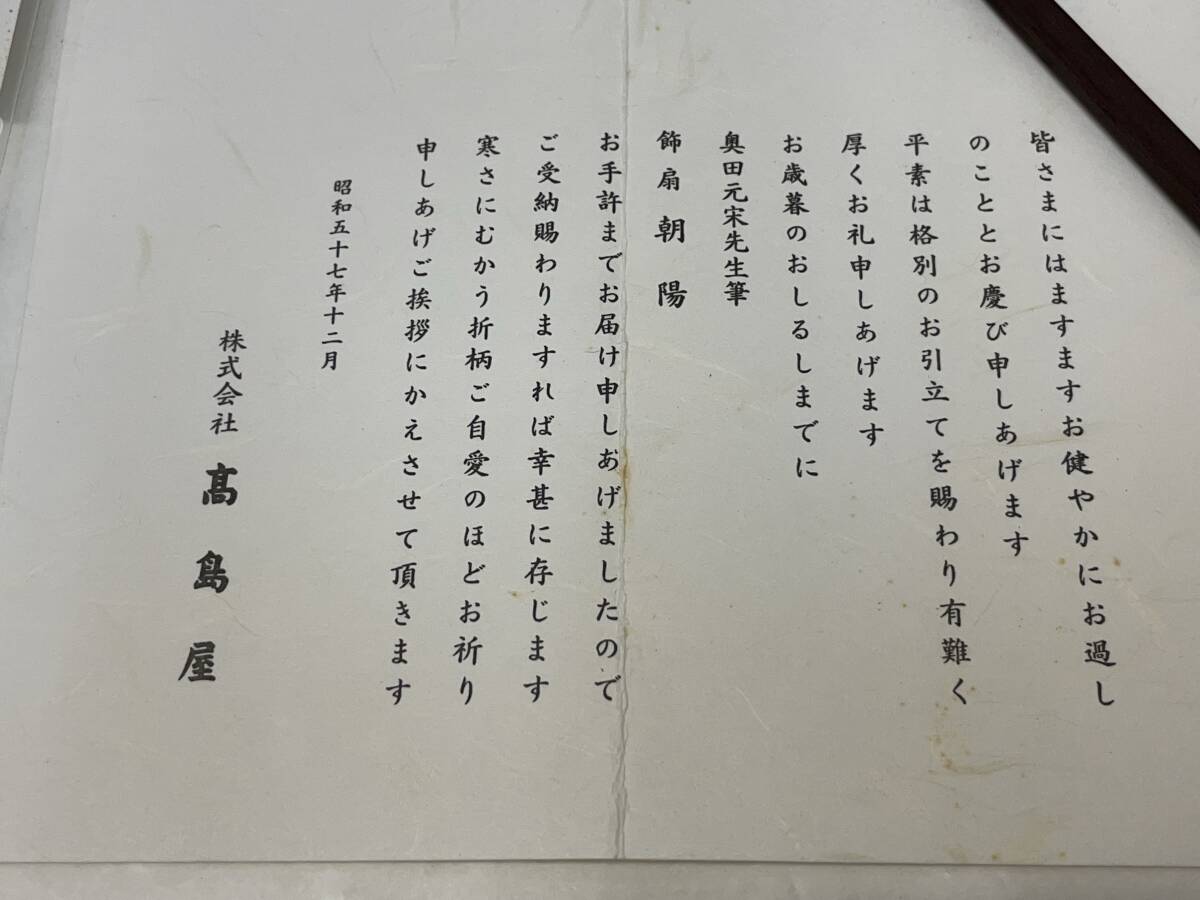 皆さまにはますますお健やかにお過し
のこととお慶び申しあげます
平素は格別のお引立てを賜わり有難く
厚くお礼申しあげます
お歳暮のおしるしまでに
奥田元宋先生筆
飾扇 朝陽
お手許までお届け申しあげましたので
ご受納賜わりますれば幸甚に存じます
寒さにむかう折柄ご自愛のほどお祈り
申しあげご挨拶にかえさせて頂きます
昭和五十七年十二月
株式会社 髙島屋